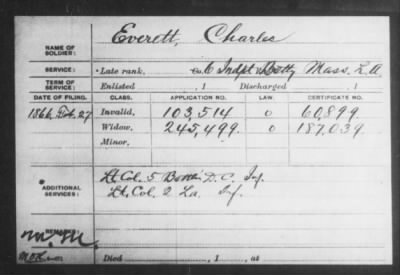 Everett, Charles
NAME OF SOLDIER:
SERVICE: Late rank, Co. 6 Indpt Batty Mass. L.A.
TERM OF SERVICE: Enlisted , 1 Discharged , 1
DATE OF FILING. CLASS. APPLICATION NO. LAW. CERTIFICATE NO.
1866, Feb. 27 Invalid, 103,514 o 60,899
Widow, 245,499. o 187,039
Minor,
ADDITIONAL SERVICES:
Lt. Col. 5 Battn D.C. Inf.
Lt. Col. 2 La. Inf.
REMARKS:
Died , 1 , at